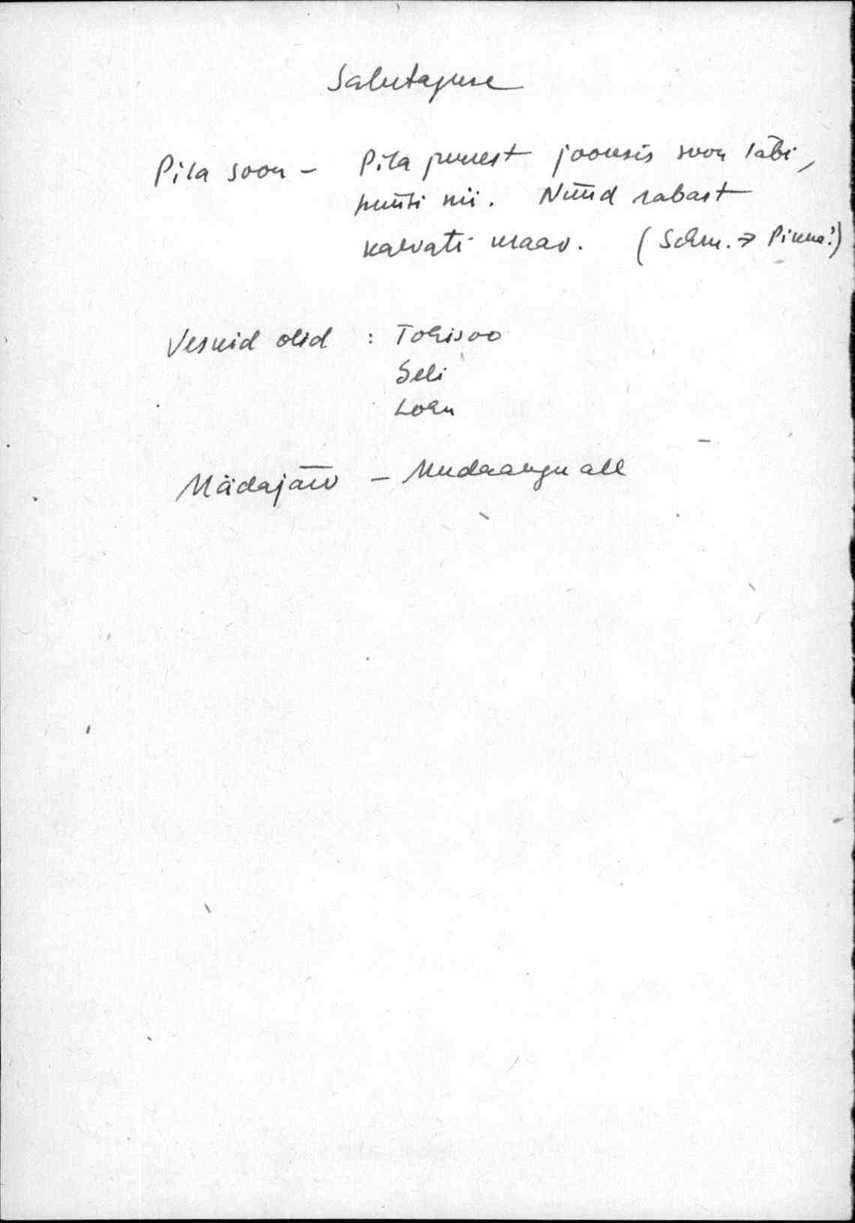 Salutaguse
Pila soon - Pila juurest jooksis soon läbi,
hüüti nii. Nüüd rabast
kaevati kraav. (Schm. → Pinna!)
Veskid olid : Tohisoo
Seli
Lohu
Mädajärv - Mudaaugu all